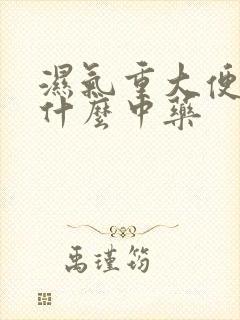 濕氣重大便
什麼中藥
禹瑾筠